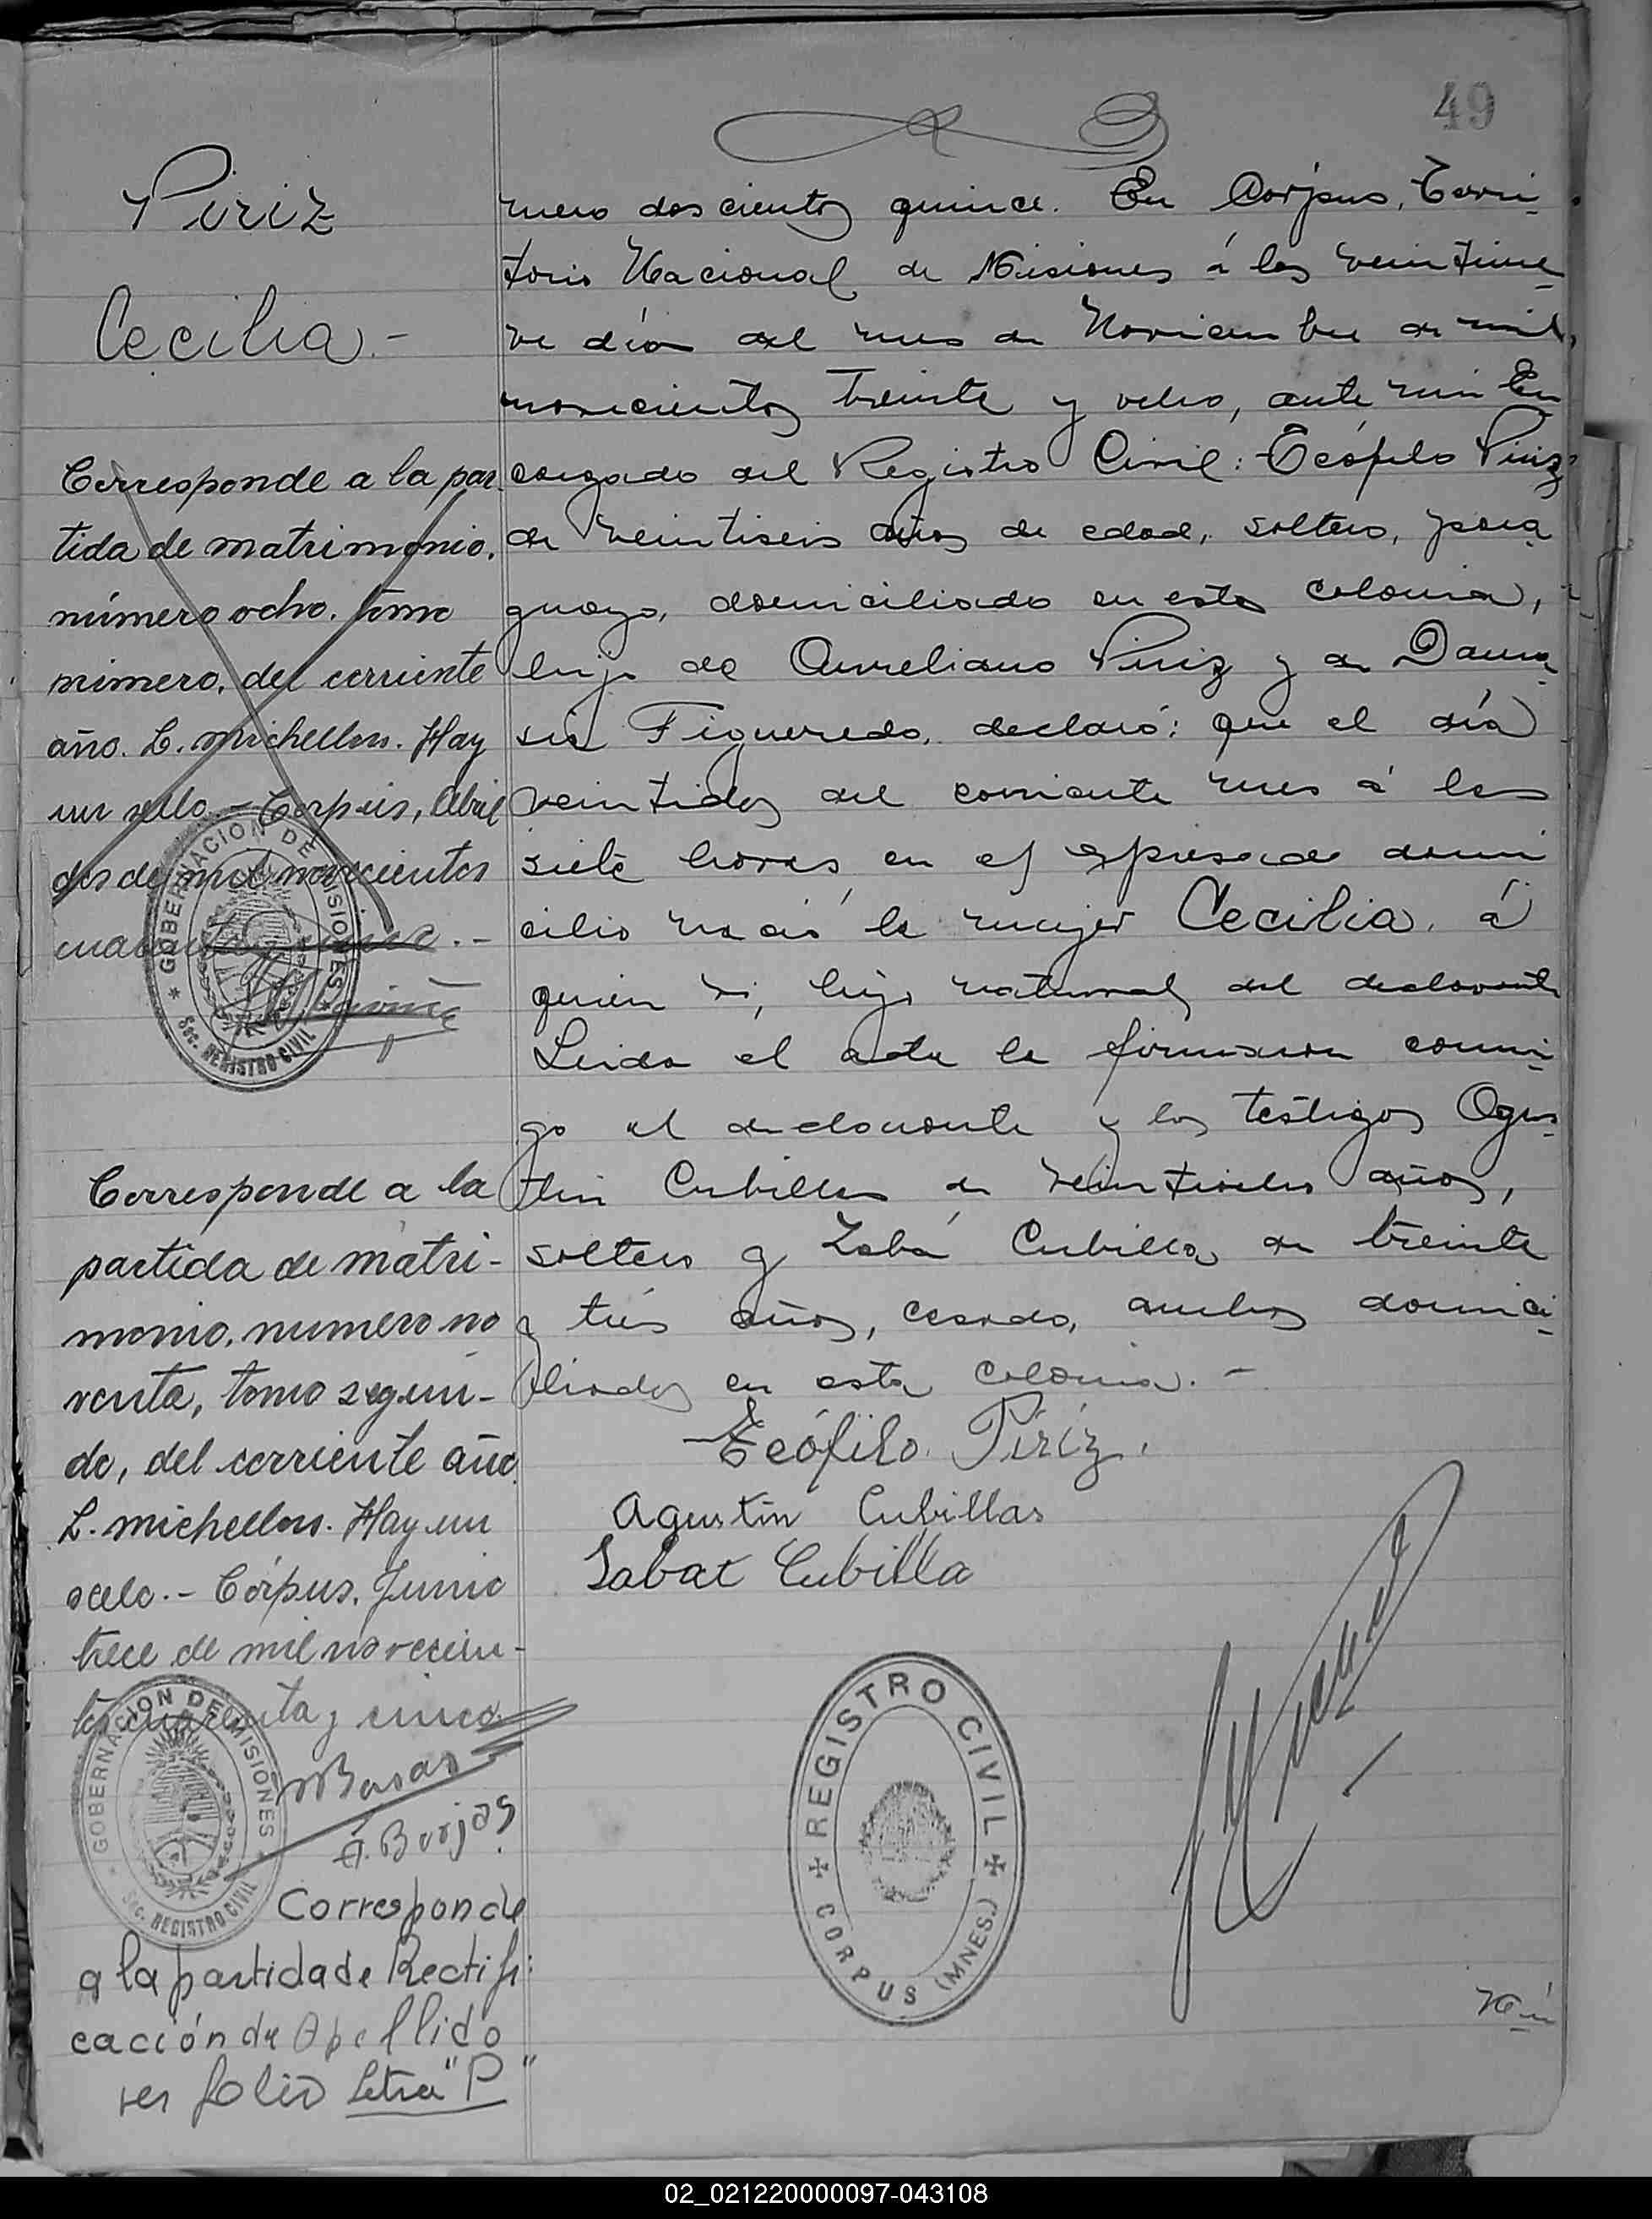 49
Piriz
Cecilia.-
mero doscientos quince. En Corpus, Terri-
torio Nacional de Misiones á los veintinue-
ve días del mes de Noviembre de mil
novecientos treinta y ocho, ante mi En
cargado del Registro Civil: Teófilo Piriz
de veintiseis años de edad, soltero, para-
guayo, domiciliado en esta colonia,
hijo de Aureliano Piriz y de Dama-
sia Figueredo, declaró: que el día
veintidos del corriente mes á las
siete horas, en el expresado domi
cilio nació la mujer Cecilia, á
quien vi, hija natural del declarante
Leida el acta la firmaron conmi-
go el declarante y los testigos Agus-
tin Cubillas de años,
soltero y Zabá Cubilla de treinta
y tres años, casado, ambos domici-
liados en esta colonia.-
Teófilo Piriz.
Agustín Cubillas
Sabat Cubilla
REGISTRO CIVIL
CORPUS (MNES.)
Corresponde a la par-
tida de matrimonio,
número ocho, tomo
primero, del corriente
año. L. Michellon. Hay
un sello.- Corpus, Abril
dos de mil novecientos
cuarenta y cinco.-
GOBERNACION DE MISIONES
Sec. REGISTRO CIVIL
Corresponde a la
partida de matri-
monio, numero no
venta, tomo segun-
do, del corriente año
L. Michellon. Hay un
sello.- Córpus, Junio
trece de mil novecien-
tos cuarenta y cinco
GOBERNACION DE MISIONES
Sec. REGISTRO CIVIL
A. Borjas
Corresponde
a la partida de Rectifi
cación de Apellido
ver folio letra "P"
02_021220000097-043108